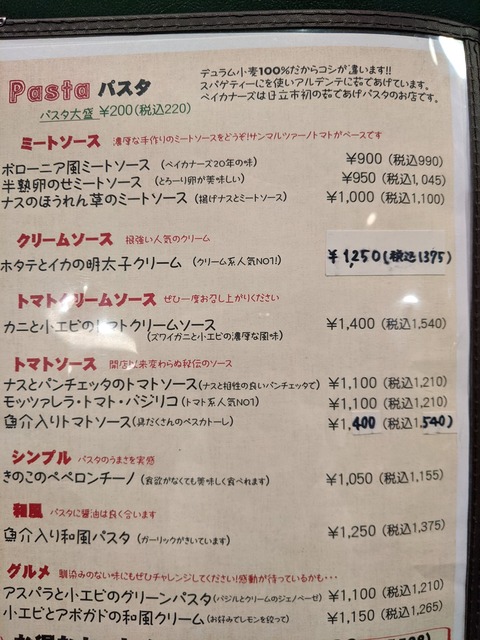 Pasta パスタ
デュラム小麦100%だからコシが違います!!
スパゲティーニを使いアルデンテに茹であげています。
ペイカナーズは日立市初の茹であげパスタのお店です。
パスタ大盛 ¥200(税込220)
ミートソース 濃厚な手作りのミートソースをどうぞ!サンマルツァーノトマトがベースです
ボローニア風ミートソース (ペイカナーズ20年の味) ¥900 (税込990)
半熟卵のせミートソース (とろーり卵が美味しい) ¥950 (税込1,045)
ナスのほうれん草のミートソース (揚げナスとミートソース) ¥1,000 (税込1,100)
クリームソース 根強い人気のクリーム
ホタテとイカの明太子クリーム (クリーム系人気NO1!) ¥1,250(税込1375)
トマトクリームソース ぜひ一度お召し上がりください
カニと小エビのトマトクリームソース ¥1,400 (税込1,540)
(ズワイガニと小エビの濃厚な風味)
トマトソース 開店以来変わらぬ秘伝のソース
ナスとパンチェッタのトマトソース(ナスと相性の良いパンチェッタで) ¥1,100 (税込1,210)
モッツァレラ・トマト・バジリコ(トマト系人気NO1) ¥1,100 (税込1,210)
魚介入りトマトソース(具だくさんのペスカトーレ) ¥1,400 (税込1,540)
シンプル パスタのうまさを実感
きのこのペペロンチーノ (食欲がなくても美味しく食べれます) ¥1,050 (税込1,155)
和風 パスタに醤油は良く合います
魚介入り和風パスタ (ガーリックがきいています) ¥1,250 (税込1,375)
グルメ 馴染みのない味にもぜひチャレンジしてください!感動が待っているかも・・・
アスパラと小エビのグリーンパスタ(バジルとクリームのジェノベーゼ) ¥1,100 (税込1,210)
小エビとアボガドの和風クリーム(お好みでレモンを絞って) ¥1,150 (税込1,265)